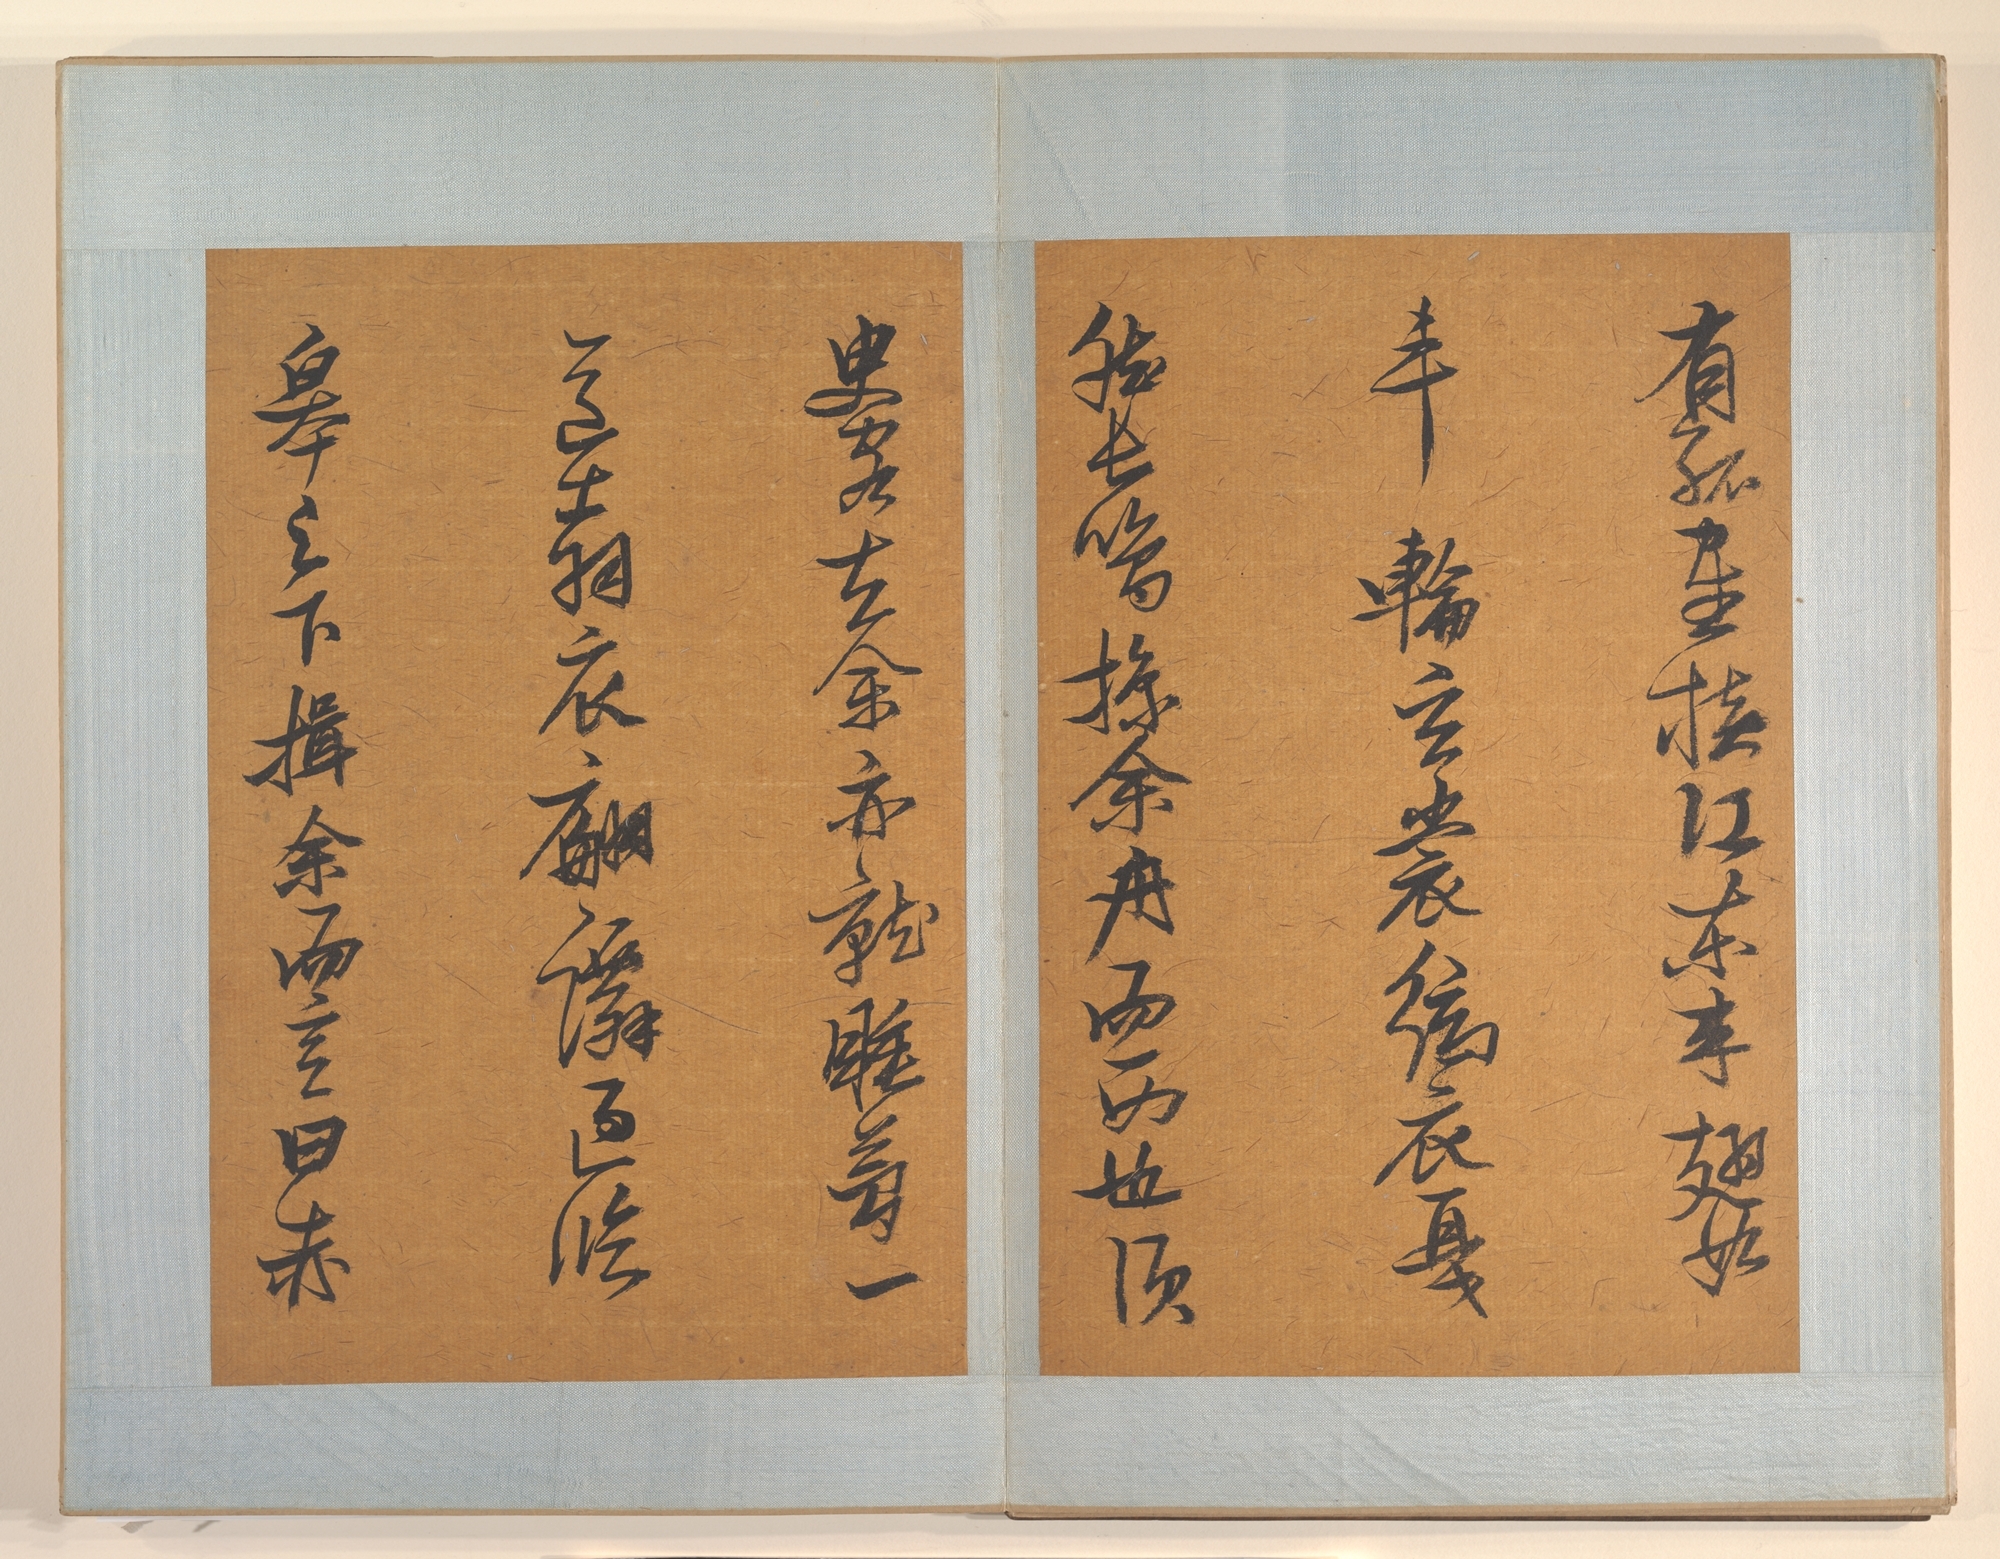 有孤寉橫江東來翅如
車輪玄裳縞衣戛
然長鳴掠余舟而西也須
臾客去余亦就睡夢一
道士羽衣翩躚過臨
皋之下揖余而言曰赤